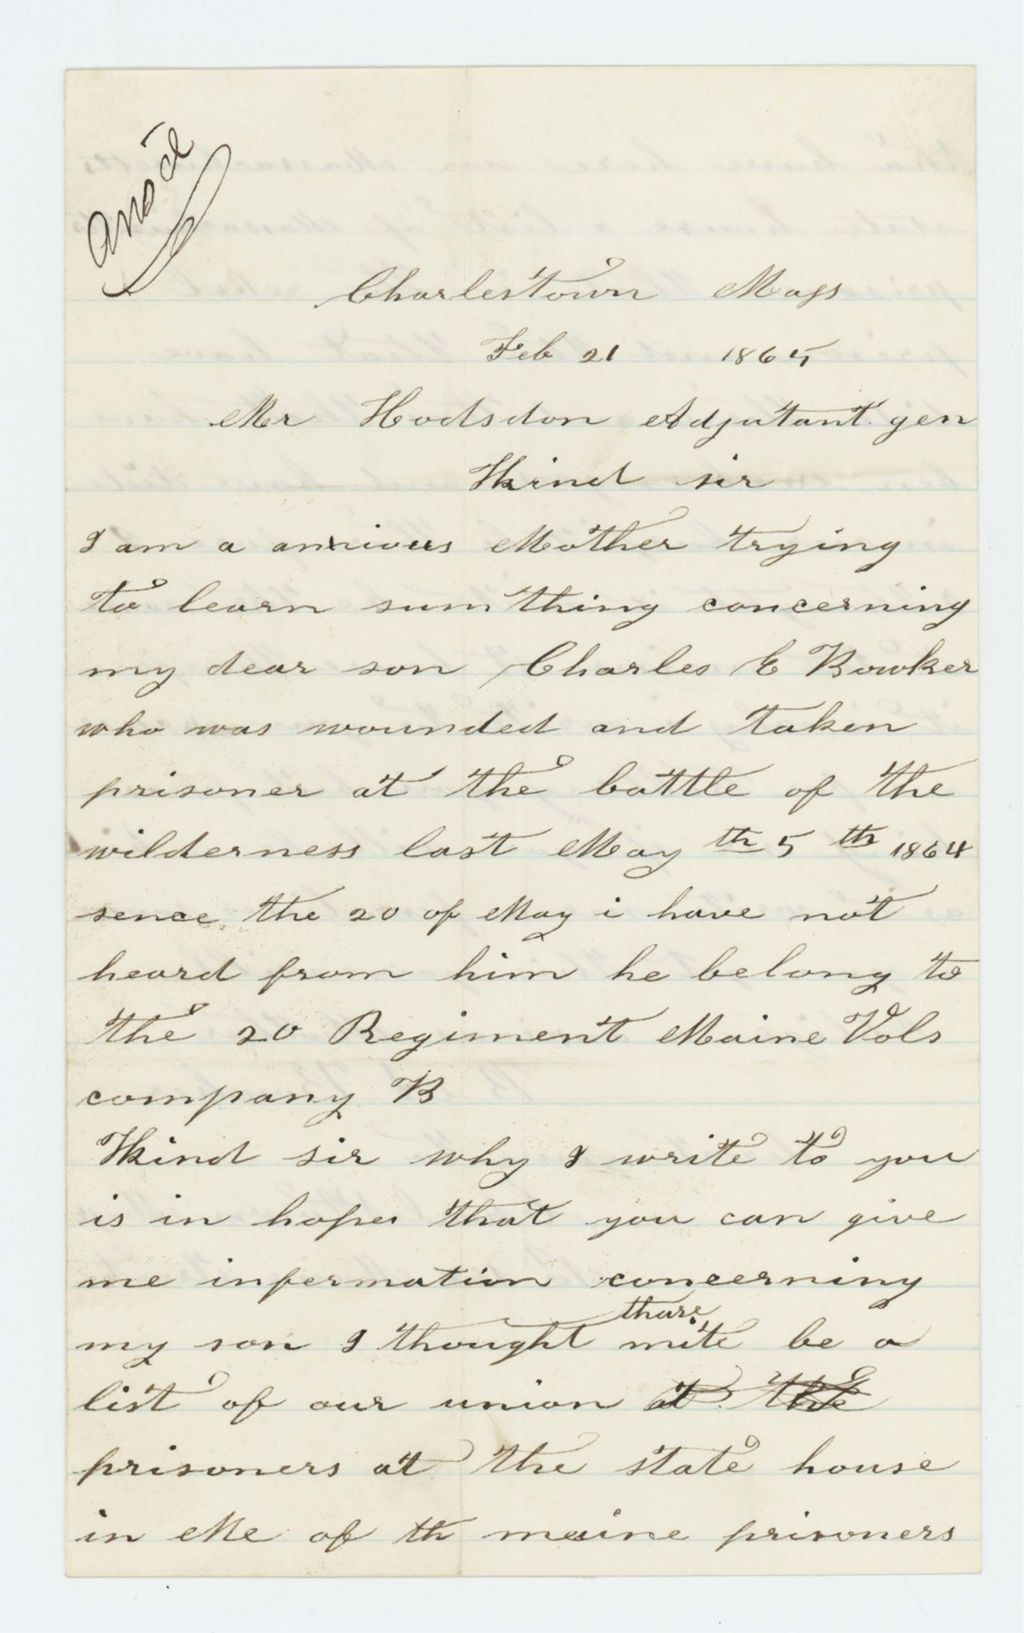 Ans'd
Charlestown Mass
Feb 21 1865
Mr Hodsdon Adjutant gen
Kind sir
I am a anxious Mother trying
to learn sumthing concerning
my dear son Charles E Bowker
who was wounded and taken
prisoner at the battle of the
wilderness last May th 5 th 1864
sence the 20 of May i have not
heard from him he belong to
the 20 Regiment Maine Vols
company B
Kind sir why I write to you
is in hopes that you can give
me information concerning
thare
my son I thought mite be a
list of our union at the
prisoners at the state house
in Me of th maine prisoners